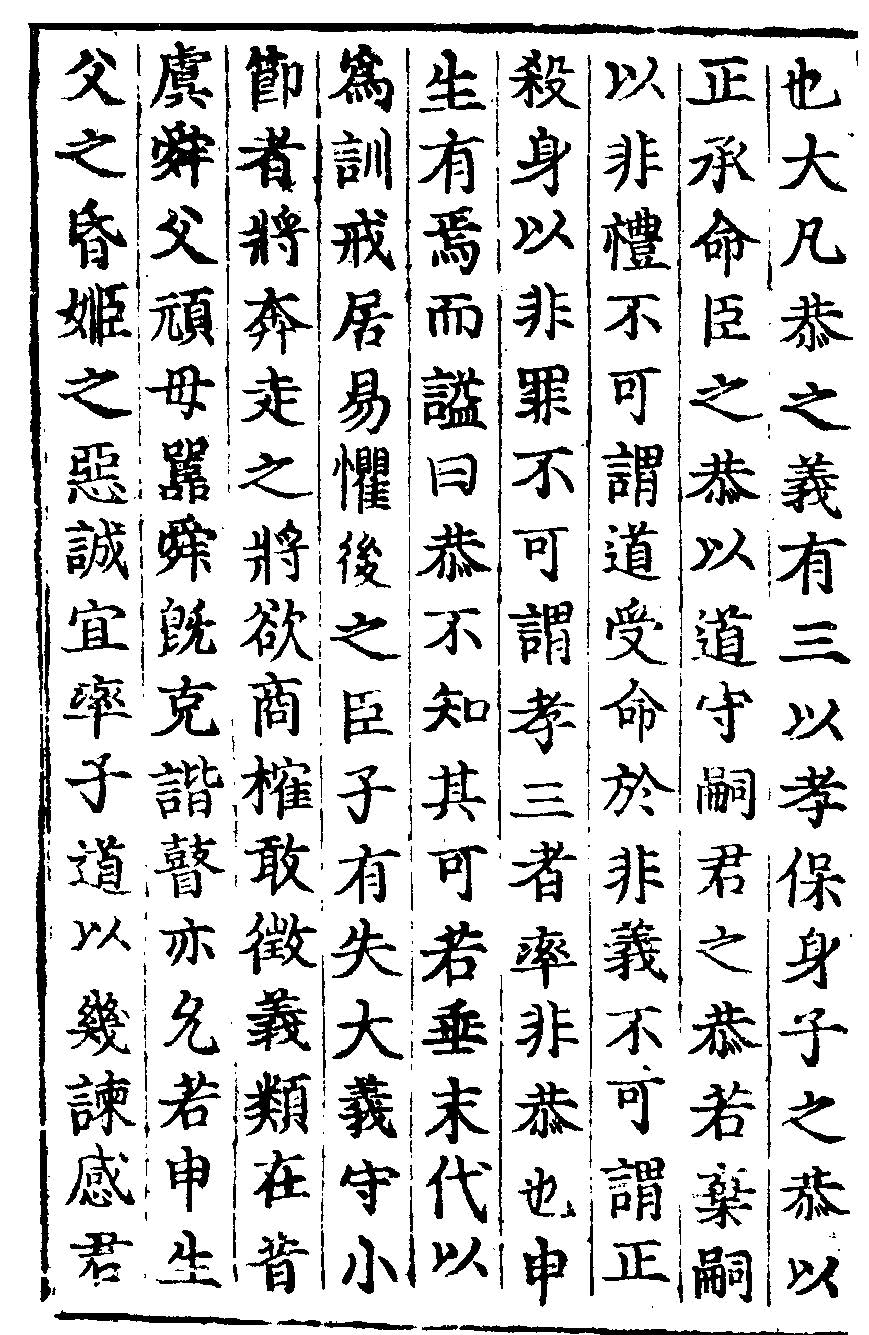 也大凡恭之義有三以孝保身子之恭以
正承命臣之恭以道守嗣君之恭若棄嗣
以非禮不可謂道受命於非義不可謂正
殺身以非罪不可謂孝三者率非恭也申
生有焉而謚曰恭不知其可若垂末代以
爲訓戒居易懼後之臣子有失大義守小
節者將奔走之將欲商榷敢徵義類在昔
虞舜父頑母嚚舜旣克諧瞽亦允若申生
父之昏姬之惡誠宜率子道以幾諫感君